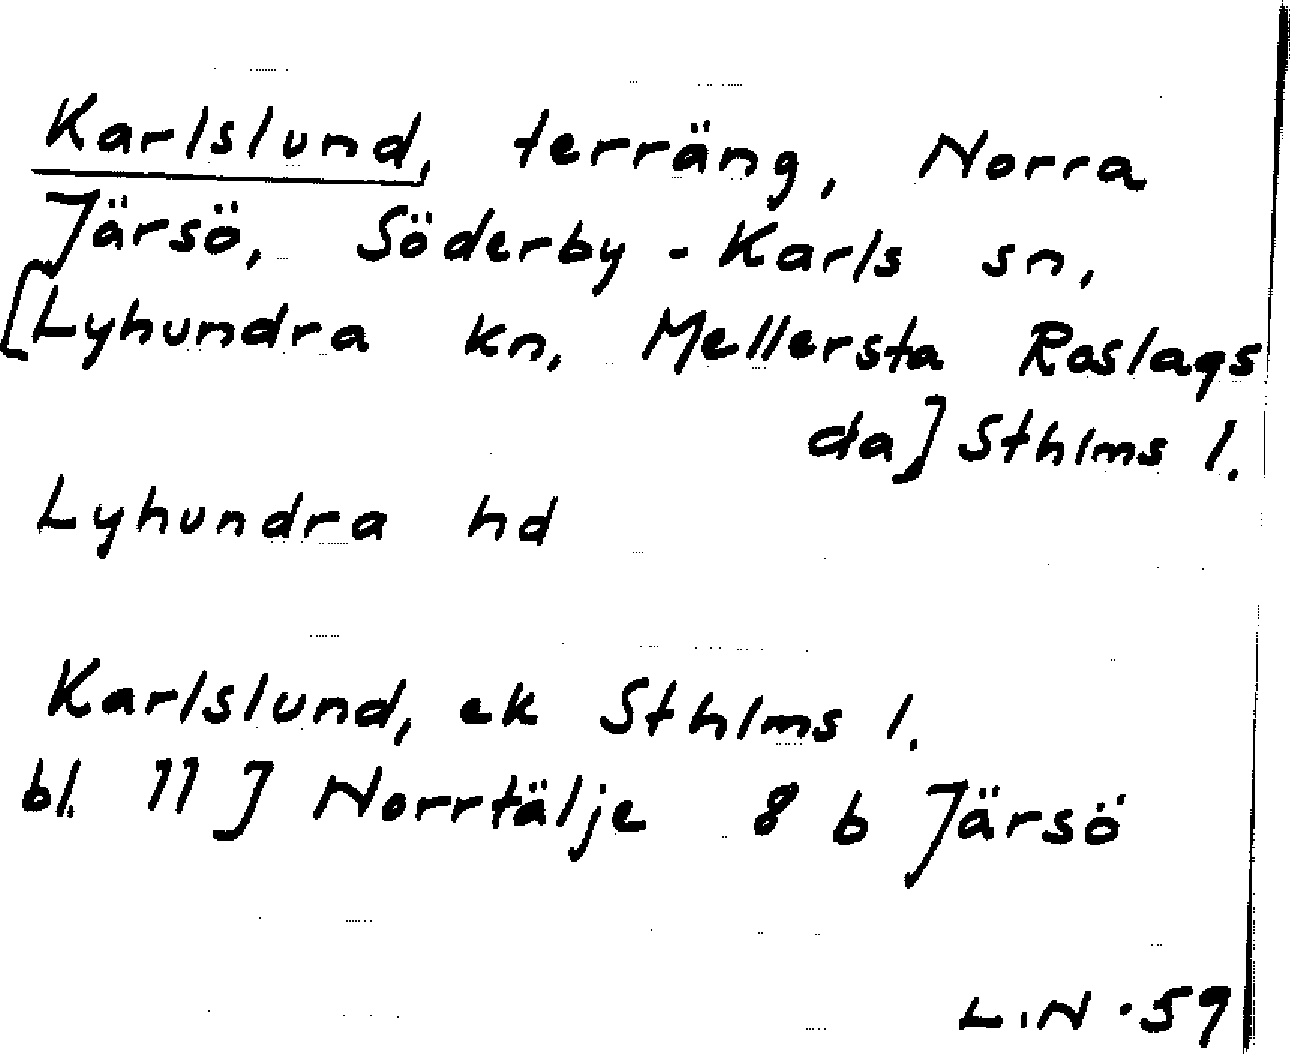 Karlslund, terräng, Norra
Järsö, Söderby-Karls sn,
[Lyhundra kn, Mellersta Roslags
da] Sthlms l.
Lyhundra hd
Karlslund, ek Sthlms l.
bl. 11 J Norrtälje 8 b Järsö
L.N.59